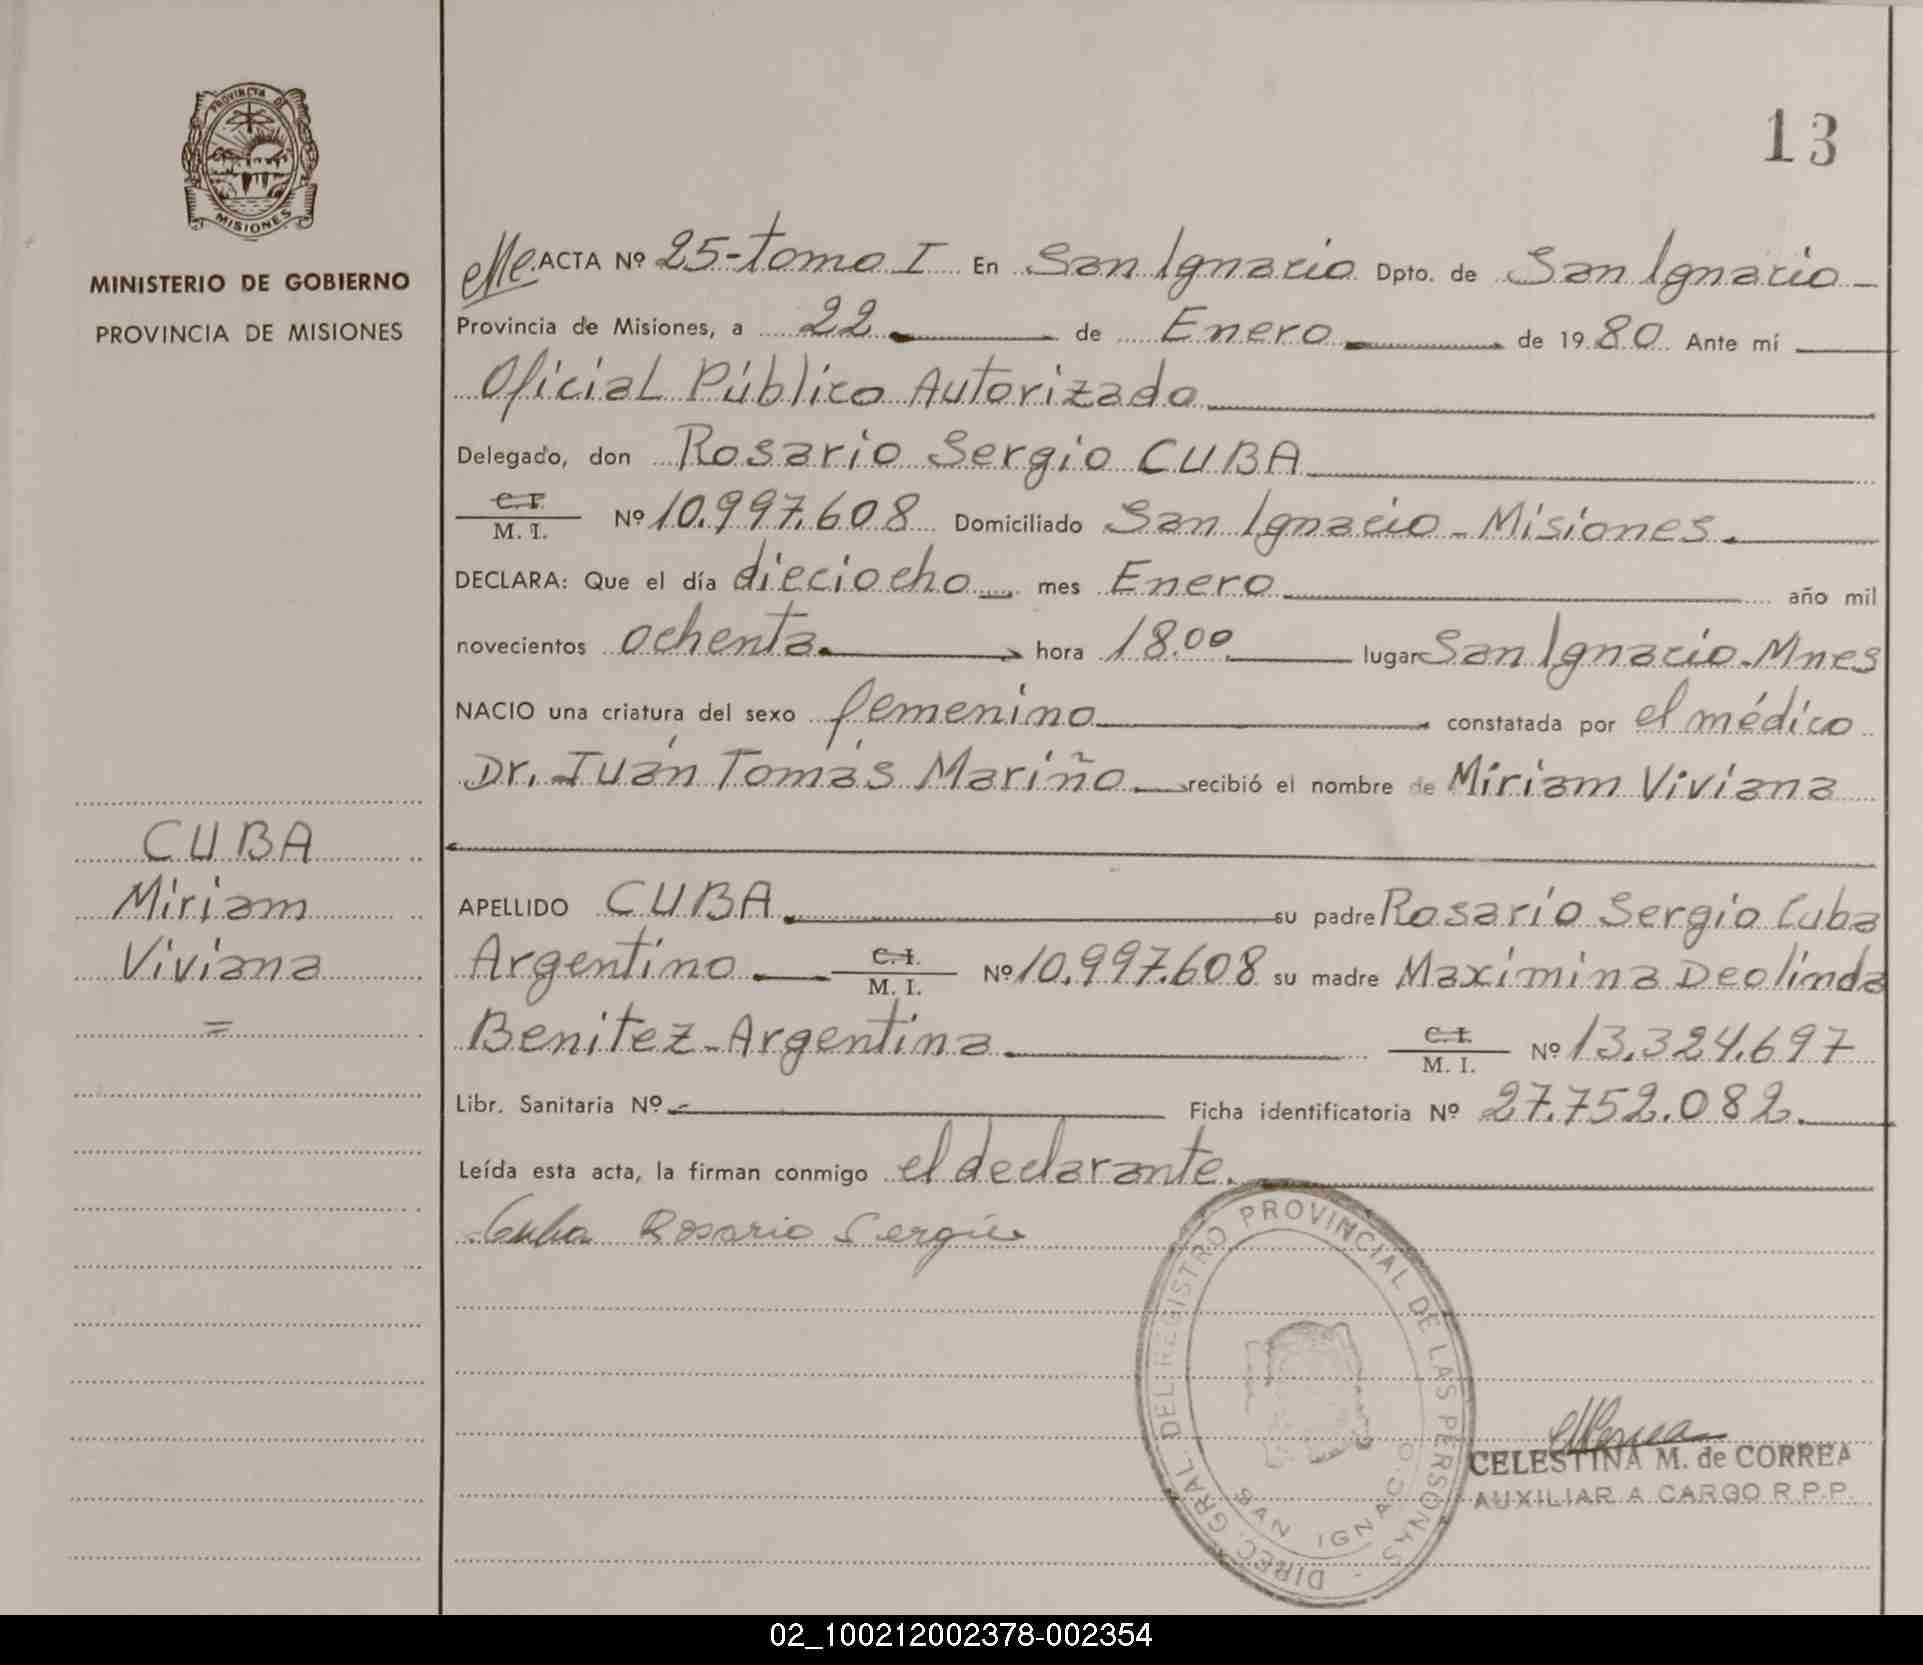 PROVINCIA DE
MISIONES
MINISTERIO DE GOBIERNO
PROVINCIA DE MISIONES
CUBA
Miriam
Viviana
=
13
ACTA Nº 25-tomo I En San Ignacio Dpto. de San Ignacio -
Provincia de Misiones, a 22 de Enero de 1980 Ante mí
Oficial Público Autorizado
Delegado, don Rosario Sergio CUBA
C. I. M. I. Nº 10.997.608 Domiciliado San Ignacio - Misiones.
DECLARA: Que el día dieciocho mes Enero año mil
novecientos ochenta hora 18.00 lugar San Ignacio-Mnes
NACIO una criatura del sexo femenino constatada por el médico
Dr. Juán Tomás Mariño recibió el nombre de Miriam Viviana
APELLIDO CUBA su padre Rosario Sergio Cuba
Argentino C. I. M. I. Nº 10.997.608 su madre Maximina Deolinda
Benitez-Argentina C. I. M. I. Nº 13.324.697
Libr. Sanitaria Nº - Ficha identificatoria Nº 27.752.082.
Leída esta acta, la firman conmigo el declarante.
Cuba Rosario Sergio
DIREC. GRAL. DEL REGISTRO PROVINCIAL DE LAS PERSONAS
SAN IGNACIO
CELESTINA M. de CORREA
AUXILIAR A CARGO R.P.P.
02_100212002378-002354